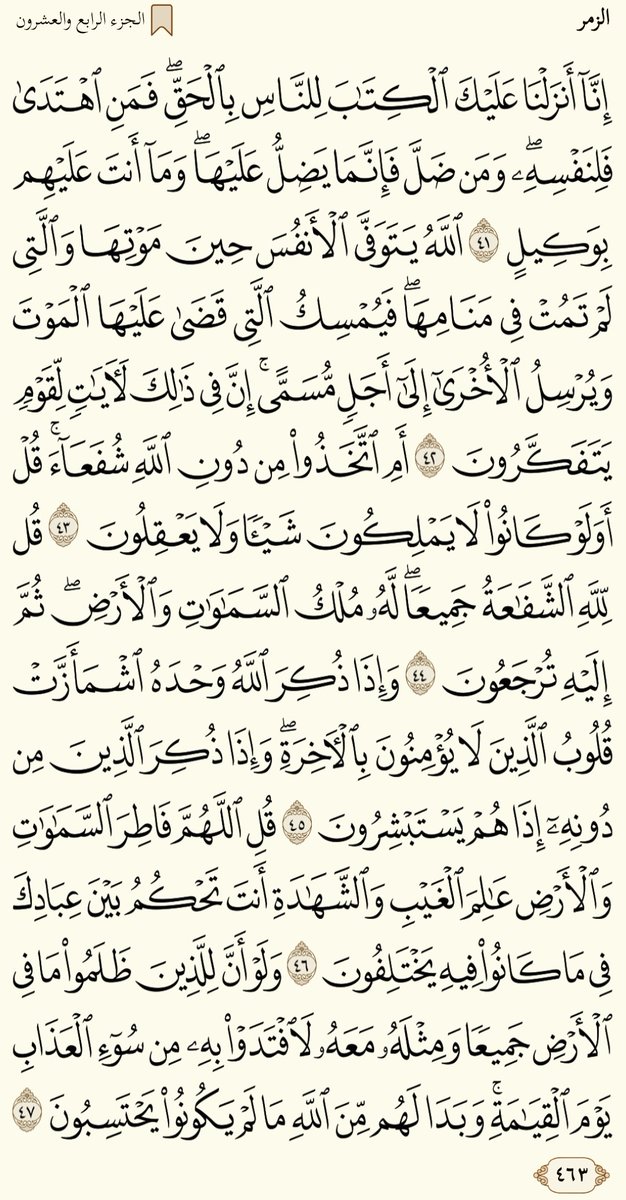 الزمر
الجزء الرابع والعشرون
إِنَّآ أَنزَلْنَا عَلَيْكَ ٱلْكِتَٰبَ لِلنَّاسِ بِٱلْحَقِّۖ فَمَنِ ٱهْتَدَىٰ
فَلِنَفْسِهِۦۖ وَمَن ضَلَّ فَإِنَّمَا يَضِلُّ عَلَيْهَاۖ وَمَآ أَنتَ عَلَيْهِم
بِوَكِيلٍ ٤١ ٱللَّهُ يَتَوَفَّى ٱلْأَنفُسَ حِينَ مَوْتِهَا وَٱلَّتِي
لَمْ تَمُتْ فِي مَنَامِهَاۖ فَيُمْسِكُ ٱلَّتِي قَضَىٰ عَلَيْهَا ٱلْمَوْتَ
وَيُرْسِلُ ٱلْأُخْرَىٰٓ إِلَىٰٓ أَجَلٍ مُّسَمًّىۚ إِنَّ فِي ذَٰلِكَ لَأٓيَٰتٍ لِّقَوْمٍ
يَتَفَكَّرُونَ ٤٢ أَمِ ٱتَّخَذُوا۟ مِن دُونِ ٱللَّهِ شُفَعَآءَۚ قُلْ
أَوَلَوْ كَانُوا۟ لَا يَمْلِكُونَ شَيْـًٔا وَلَا يَعْقِلُونَ ٤٣ قُل
لِّلَّهِ ٱلشَّفَٰعَةُ جَمِيعًاۖ لَّهُۥ مُلْكُ ٱلسَّمَٰوَٰتِ وَٱلْأَرْضِۖ ثُمَّ
إِلَيْهِ تُرْجَعُونَ ٤٤ وَإِذَا ذُكِرَ ٱللَّهُ وَحْدَهُ ٱشْمَأَزَّتْ
قُلُوبُ ٱلَّذِينَ لَا يُؤْمِنُونَ بِٱلْأٓخِرَةِۖ وَإِذَا ذُكِرَ ٱلَّذِينَ مِن
دُونِهِۦٓ إِذَا هُمْ يَسْتَبْشِرُونَ ٤٥ قُلِ ٱللَّهُمَّ فَاطِرَ ٱلسَّمَٰوَٰتِ
وَٱلْأَرْضِ عَٰلِمَ ٱلْغَيْبِ وَٱلشَّهَٰدَةِ أَنتَ تَحْكُمُ بَيْنَ عِبَادِكَ
فِي مَا كَانُوا۟ فِيهِ يَخْتَلِفُونَ ٤٦ وَلَوْ أَنَّ لِلَّذِينَ ظَلَمُوا۟ مَا فِي
ٱلْأَرْضِ جَمِيعًا وَمِثْلَهُۥ مَعَهُۥ لَٱفْتَدَوْا۟ بِهِۦ مِن سُوٓءِ ٱلْعَذَابِ
يَوْمَ ٱلْقِيَٰمَةِۚ وَبَدَا لَهُم مِّنَ ٱللَّهِ مَا لَمْ يَكُونُوا۟ يَحْتَسِبُونَ ٤٧
٤٦٣